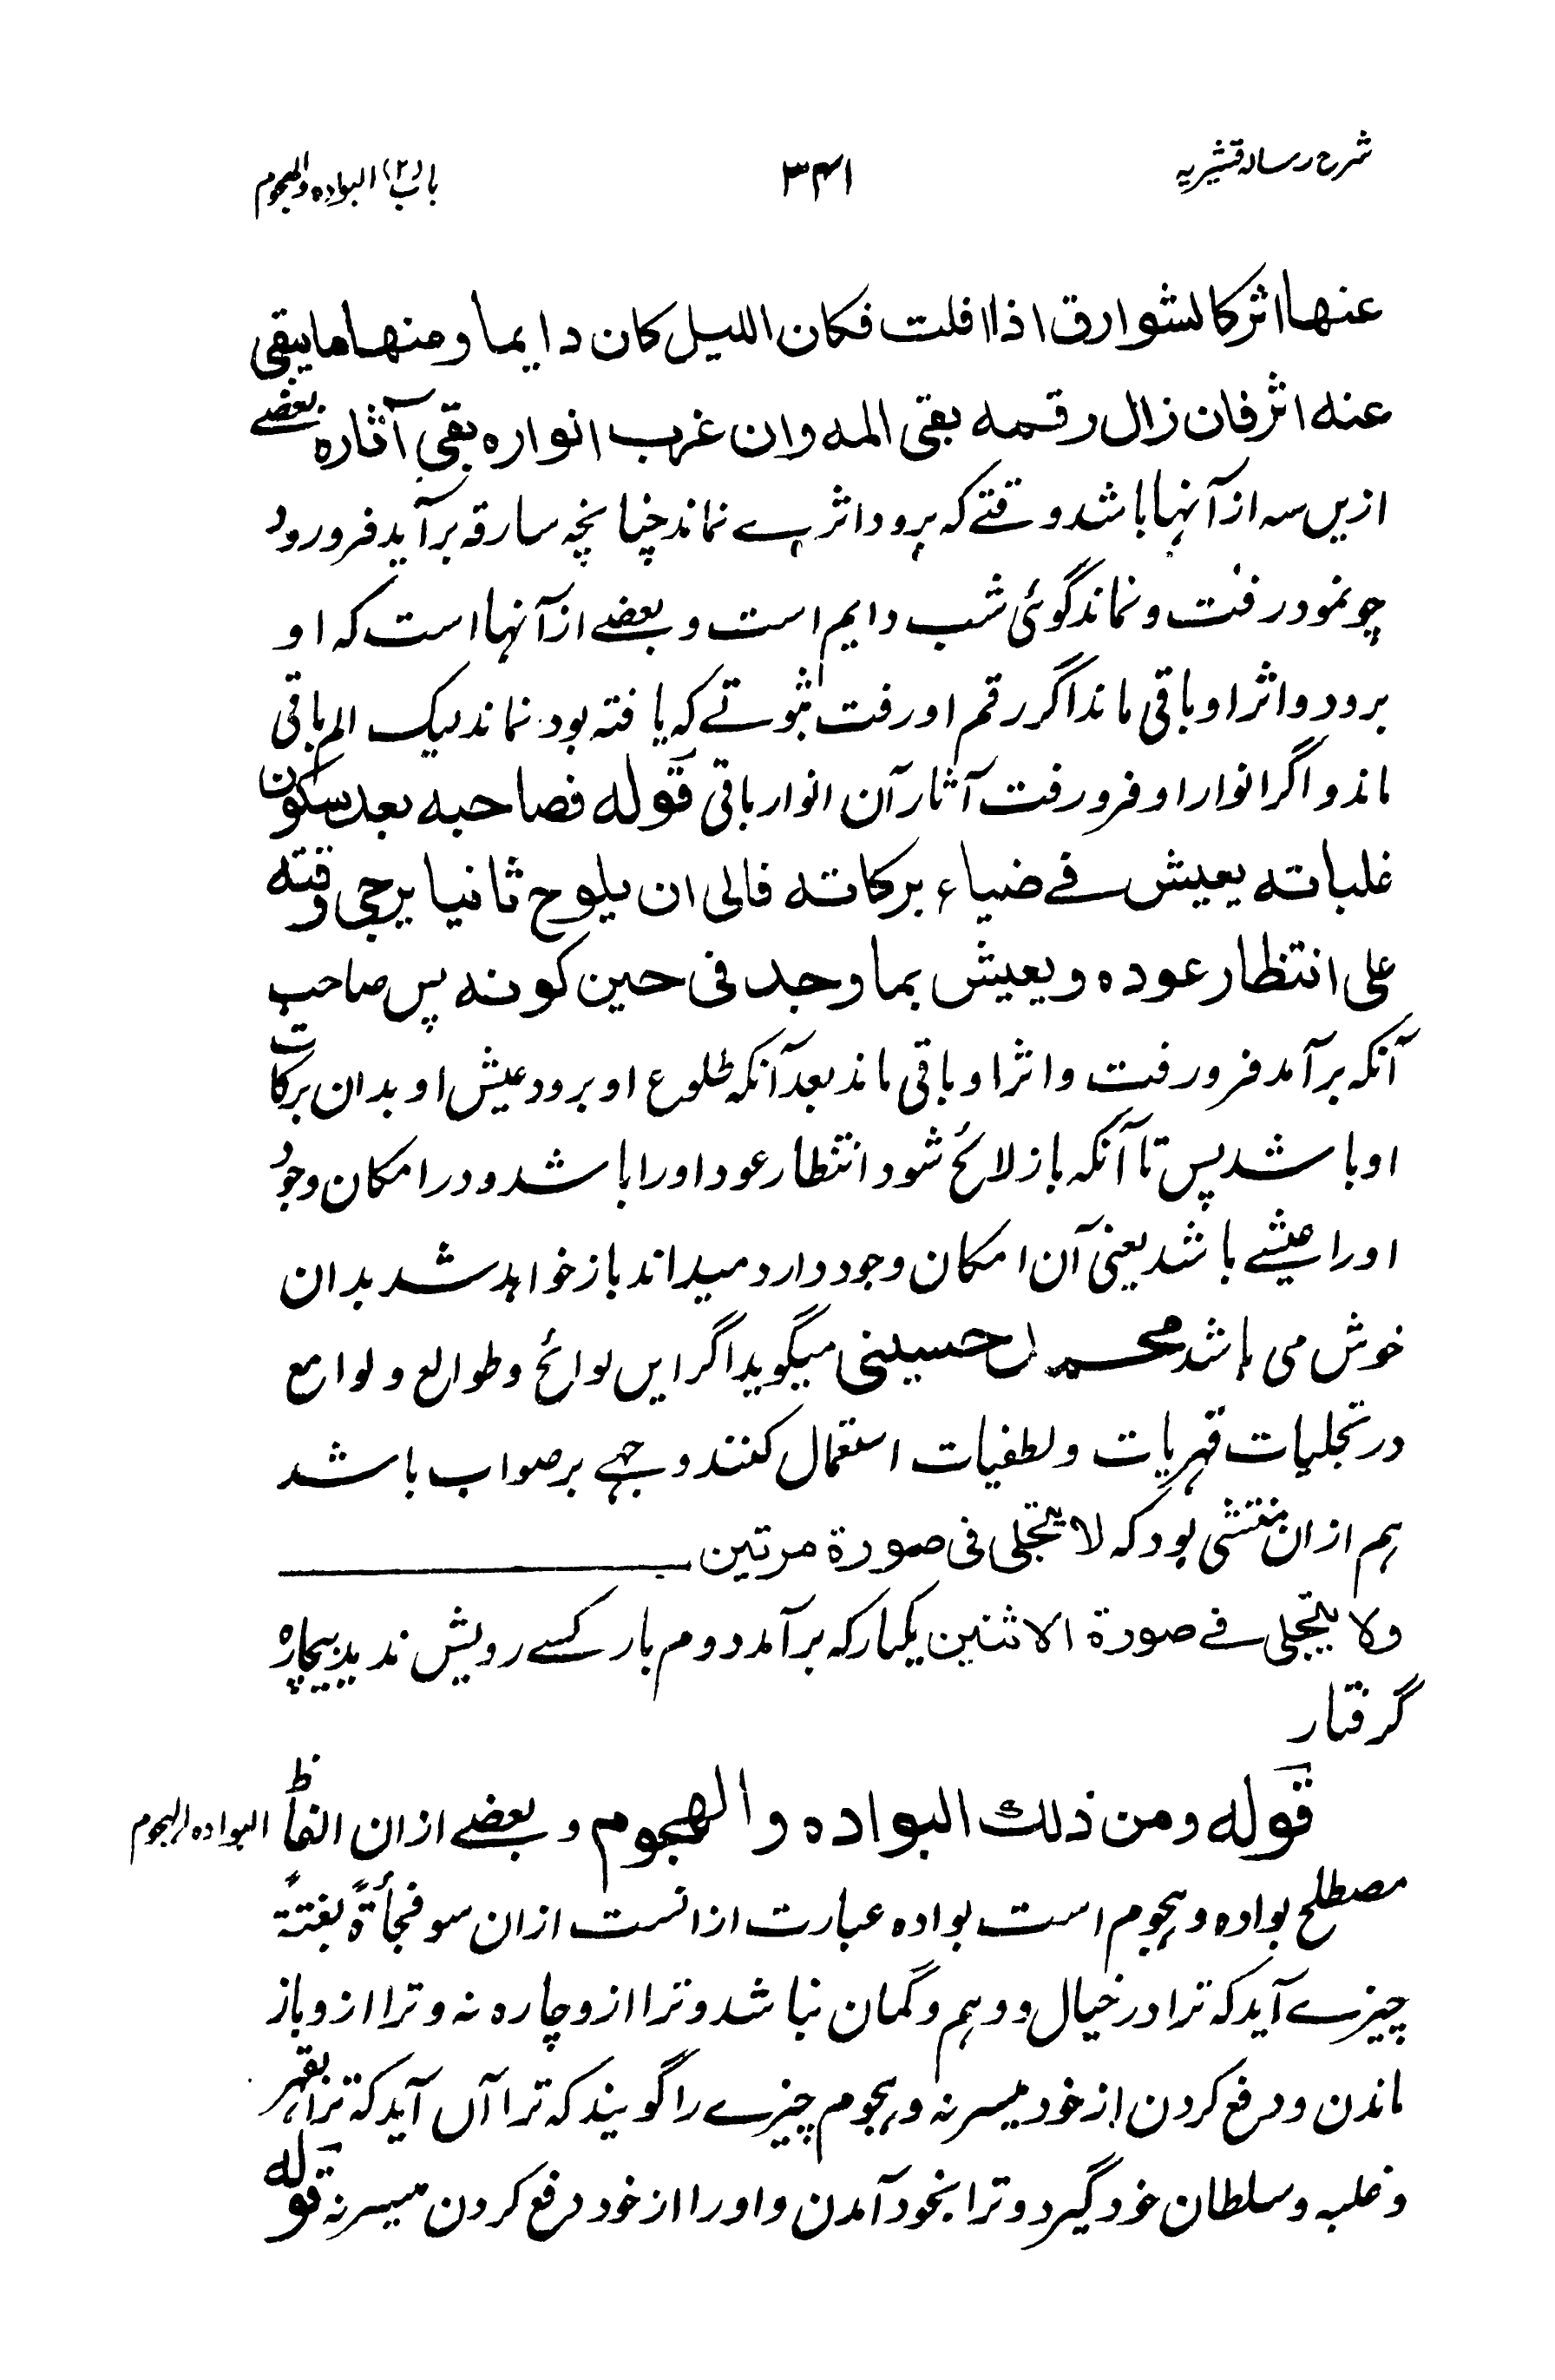 شرح رسالہ قشیریہ
۳۴۱
باب (۲) البوادہ والہجوم
عنها اثر کالشوارق اذا افلت فکان اللیل کان دایما و منها ما یبقی
عنه اثر فان زال رقمه بقی المه وان غرب انواره بقی آثاره بعضے
ازیں سه از آنہا باشد وقتے که برود اثرے نماند چنانچه سارقه برآید فرورود
چو نمود رفت و نماند گوئی شب دایم است و بعضے از آنہا است که او
برود و اثر او باقی ماند اگر رقم او رفت ثبوتے که یافته بود نماند لیک الم باقی
ماند و اگر انوار او فرو رفت آثار آن انوار باقی قوله فصاحبه بعد سکون
غلباته یعیش فے ضیاء برکاته فالی ان یلوح ثانیا یرجی وقته
علی انتظار عوده و یعیش بما وجد فی حین کونه پس صاحب
آنکه برآمد فرو رفت و اثر او باقی ماند بعد آنکه طلوع او برود عیش او بدان برکات
او باشد پس تا آنکه باز لائح شود انتظار عود او را باشد و در امکان وجود
او را عیشے باشد یعنی آن امکان وجود دارد میداند باز خواہد شد بدان
خوش می باشد محمد حسینی میگوید اگر ایں لوائح و طوالع و لوامع
در تجلیات قہریات و لطفیات استعمال کنند وجہے بر صواب باشد
ہم ازان منتشی بود که لا یتجلی فی صورة مرتین
ولا یتجلی فے صورة الاثنین یکبار که برآمد دوم بار کسے رویش ندید بیچاره
گرفتار
قوله ومن ذلك البواده والهجوم و بعضے ازان الفاظ
البوادہ والہجوم
مصطلح بواده و ہجوم است بواده عبارت از انست ازان سو فجأةً بغتةً
چیزے آید که ترا در خیال و وہم و گمان نباشد و ترا ازو چاره نه و ترا ازو باز
ماندن و دفع کردن از خود میسر نه و ہجوم چیزے را گویند که ترا آں آید که ترا بقہر
و غلبه و سلطان خود گیرد و ترا بخود آمدن و او را از خود دفع کردن میسر نه قوله